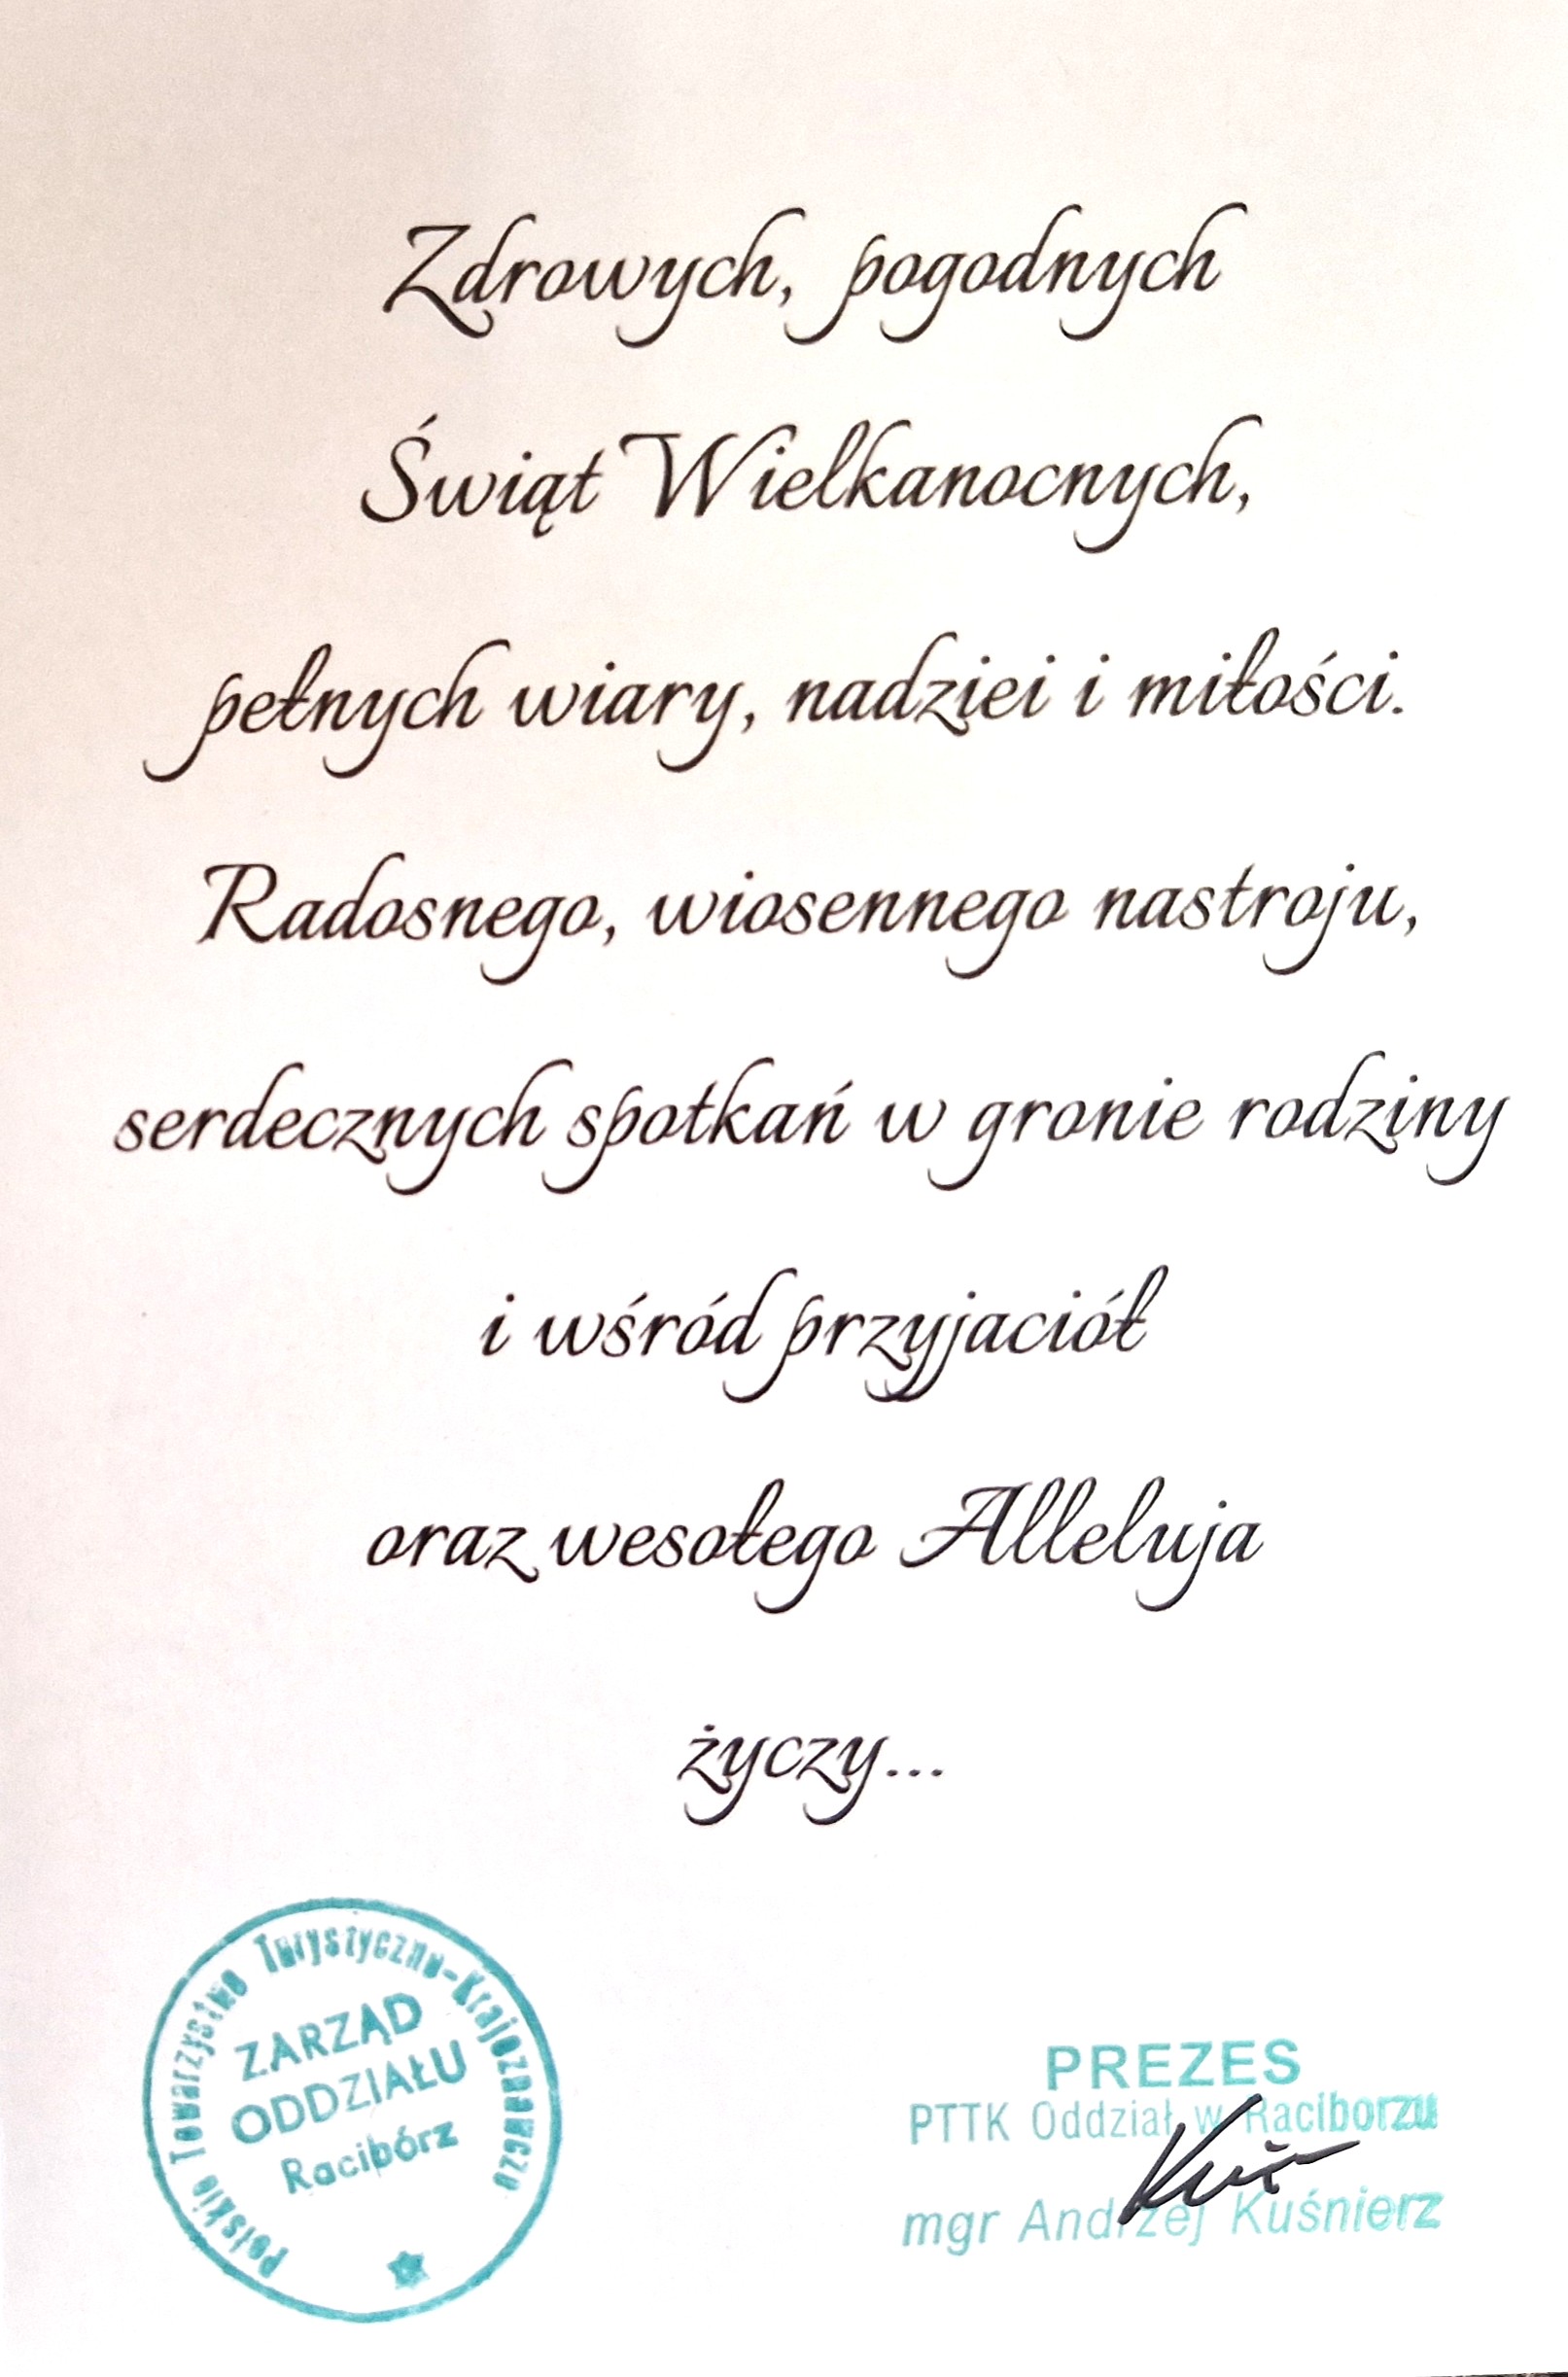 Zdrowych, pogodnych
Świąt Wielkanocnych,
pełnych wiary, nadziei i miłości.
Radosnego, wiosennego nastroju,
serdecznych spotkań w gronie rodziny
i wśród przyjaciół
oraz wesołego Alleluja
życzy...
Polskie Towarzystwo Turystyczno-Krajoznawcze
ZARZĄD
ODDZIAŁU
Racibórz
PREZES
PTTK Oddział w Raciborzu
mgr Andrzej Kuśnierz